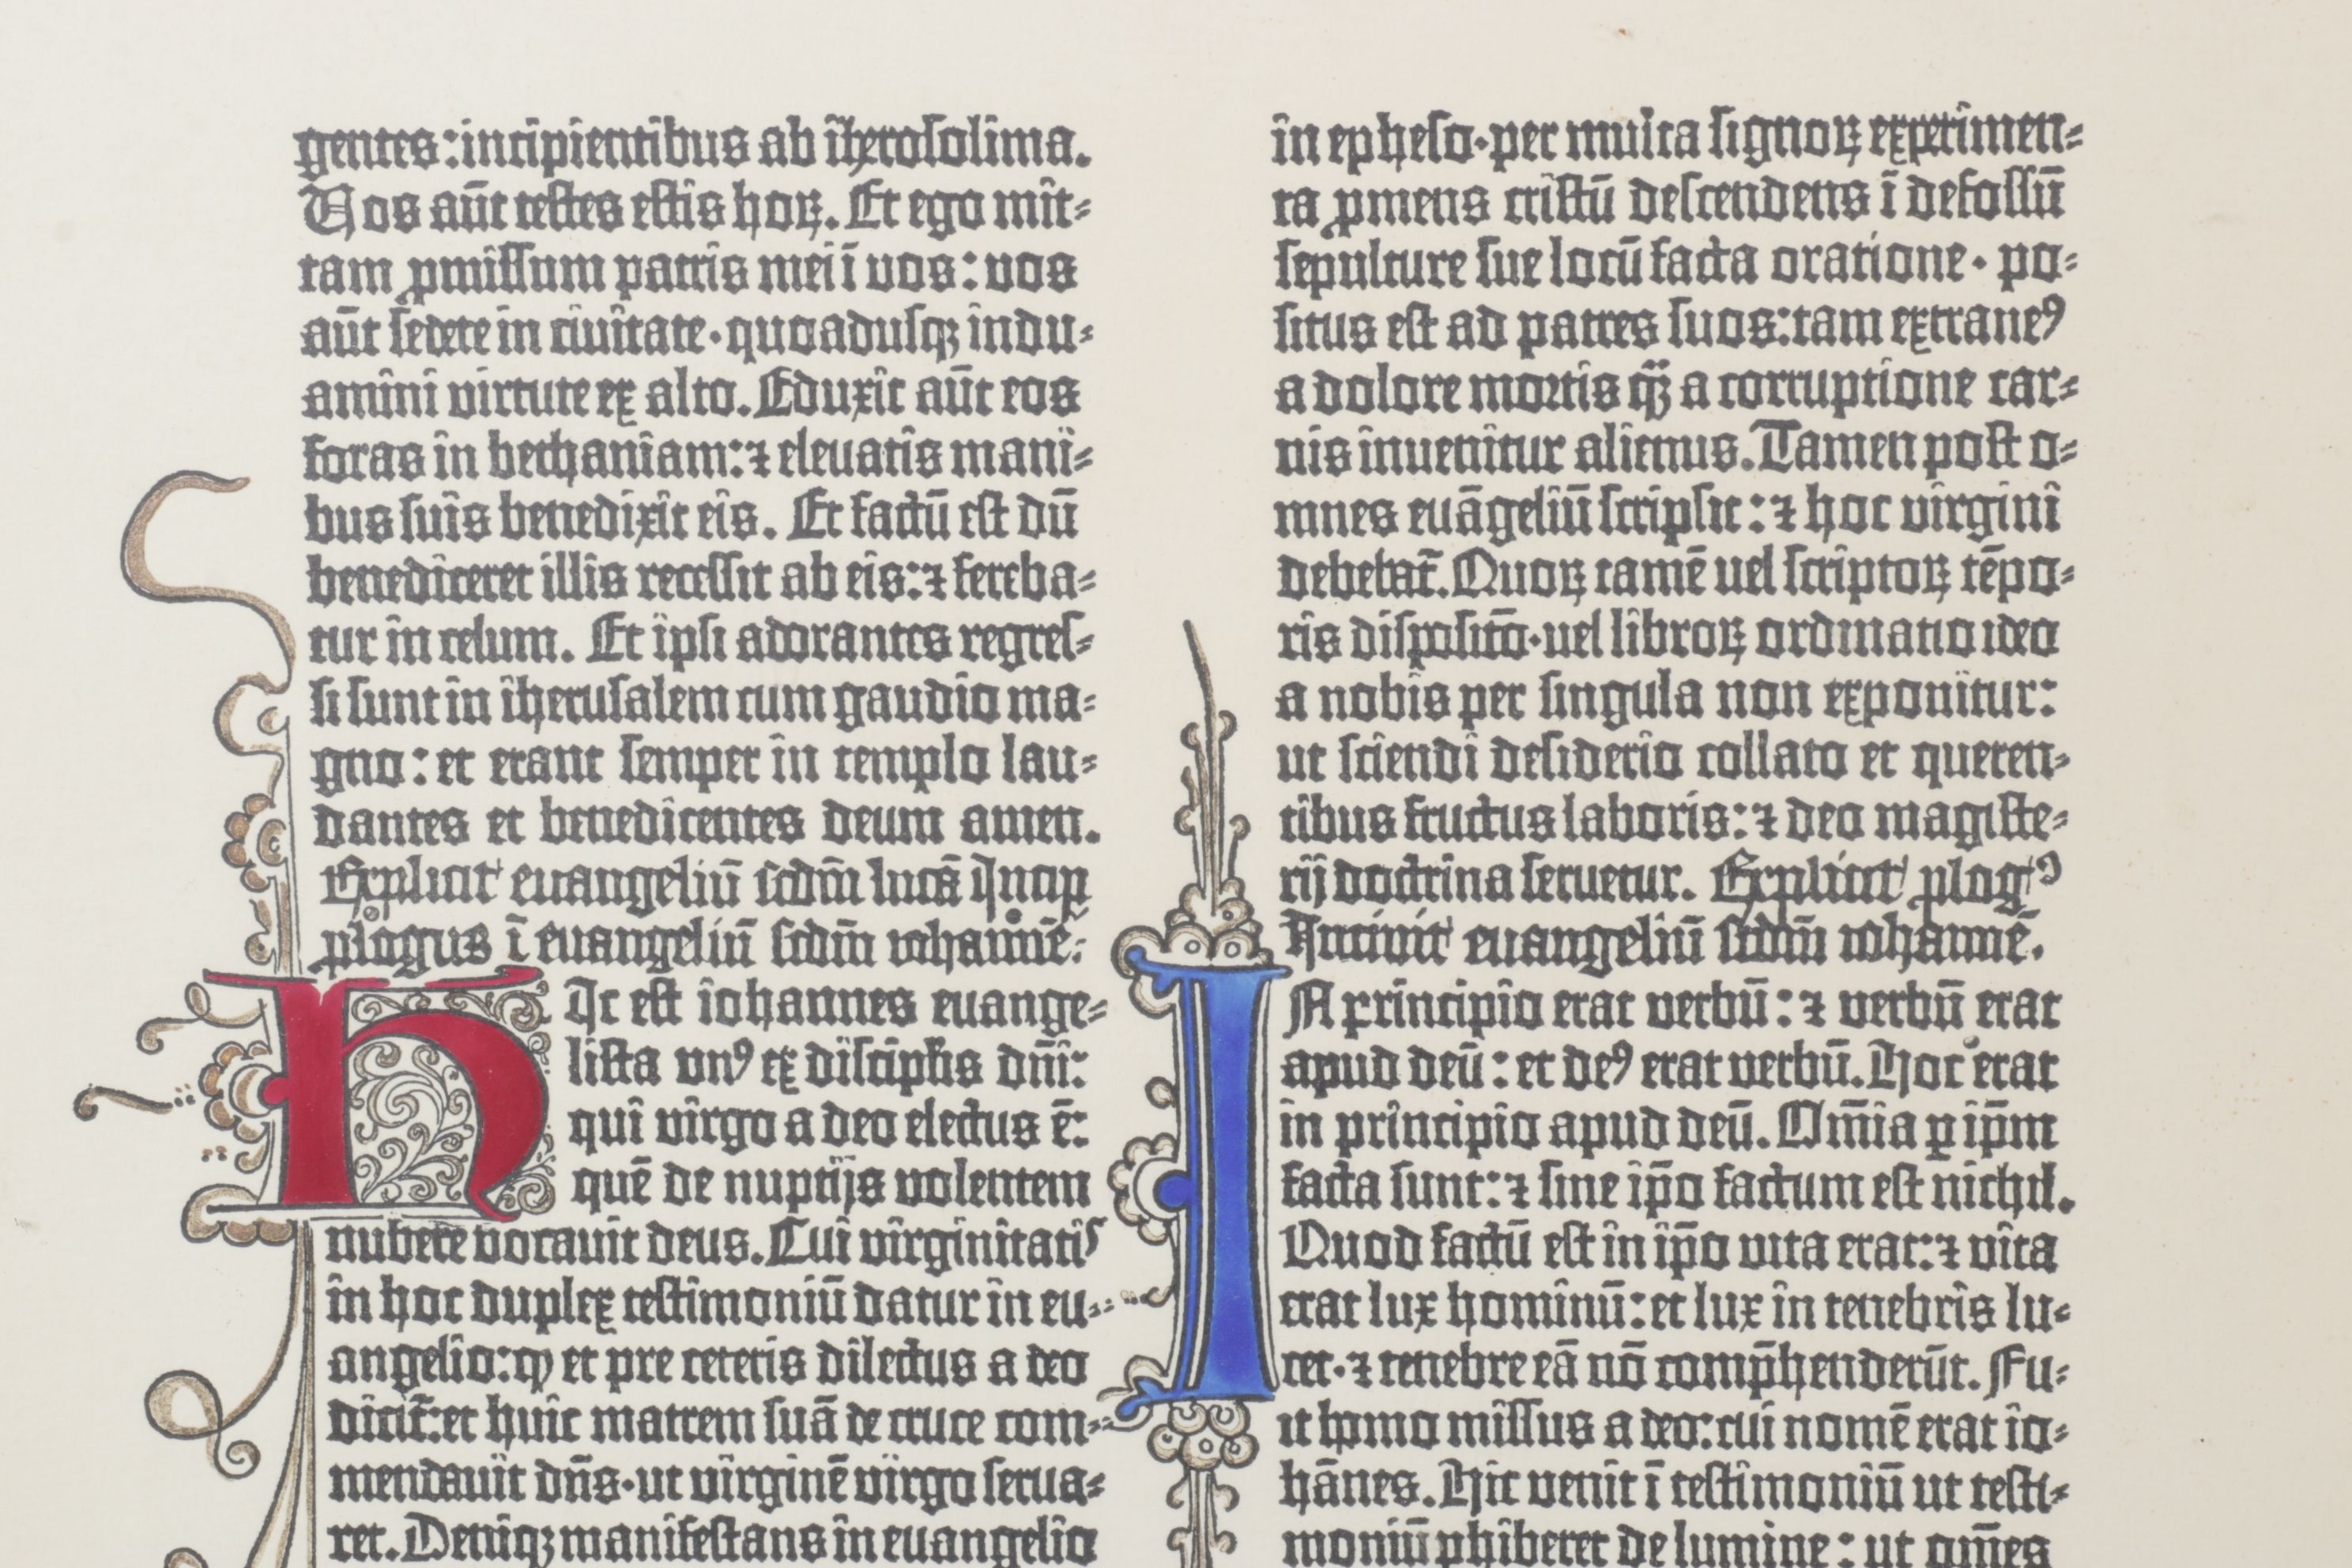 gentes: incipientibus ab iherosolima.
Vos aūt testes estis hoꝝ. Et ego mit⸗
tam ꝓmissum patris mei ī vos: vos
aūt sedete in civitate· quoadusqꝫ indu⸗
amini virtute ex alto. Eduxit aūt eos
foras in bethaniam: ⁊ elevatis mani⸗
bus suis benedixit eis. Et factū est dū
benediceret illis recessit ab eis: ⁊ fereba⸗
tur in celum. Et ipsi adorantes regres⸗
si sunt in iherusalem cum gaudio ma⸗
gno: et erant semper in templo lau⸗
dantes et benedicentes deum amen.
Explicit euangeliū scdm̄ lucā Incip
plogus ī euangeliū scdm̄ iohannē:
HIc est iohannes euange⸗
lista vnꝰ ex disciplis dn̄i:
qui virgo a deo electus ē:
quē de nuptijs volentem
nubere vocauit deus. Cui virginitatis
in hoc duplex testimoniū datur in eu⸗
angelio: ꝙ et pre ceteris dilectus a deo
dicit̄: et huic matrem suā de cruce com⸗
mendauit dn̄s· ut virginē virgo serua⸗
ret. Deniqꝫ manifestans in euangelio
in epheso· per multa signoꝝ experimen⸗
ta ꝓmens cristū descendens ī defossū
sepulture sue locū facta oratione· po⸗
situs est ad patres suos: tam extraneꝰ
a dolore mortis q̄ꝫ a corruptione car⸗
nis inuenitur alienus. Tamen post o⸗
mnes euāgeliū scripsit: ⁊ hoc virgini
debebat̄. Quoꝝ tamē vel scriptoꝝ tēpo⸗
ris disposito· vel libroꝝ ordinatio ideo
a nobis per singula non exponitur:
ut sciendi desiderio collato et queren⸗
tibus fructus laboris: ⁊ deo magiste⸗
rij doctrina seruetur. Explicit plogꝰ
Incipit euangeliū scdm̄ iohannē.
IN principio erat verbū: ⁊ verbū erat
apud deū: et deꝰ erat verbū. Hoc erat
in principio apud deū. Om̄ia ꝑ ip̄m
facta sunt: ⁊ sine ip̄o factum est nichil.
Quod factū est in ip̄o vita erat: ⁊ vita
erat lux hominū: et lux in tenebris lu⸗
cet· ⁊ tenebre eā nō comp̄henderūt. Fu⸗
it homo missus a deo: cui nomē erat io⸗
hānes. Hic venit ī testimoniū ut testi⸗
moniū phiberet de lumine: ut om̄es